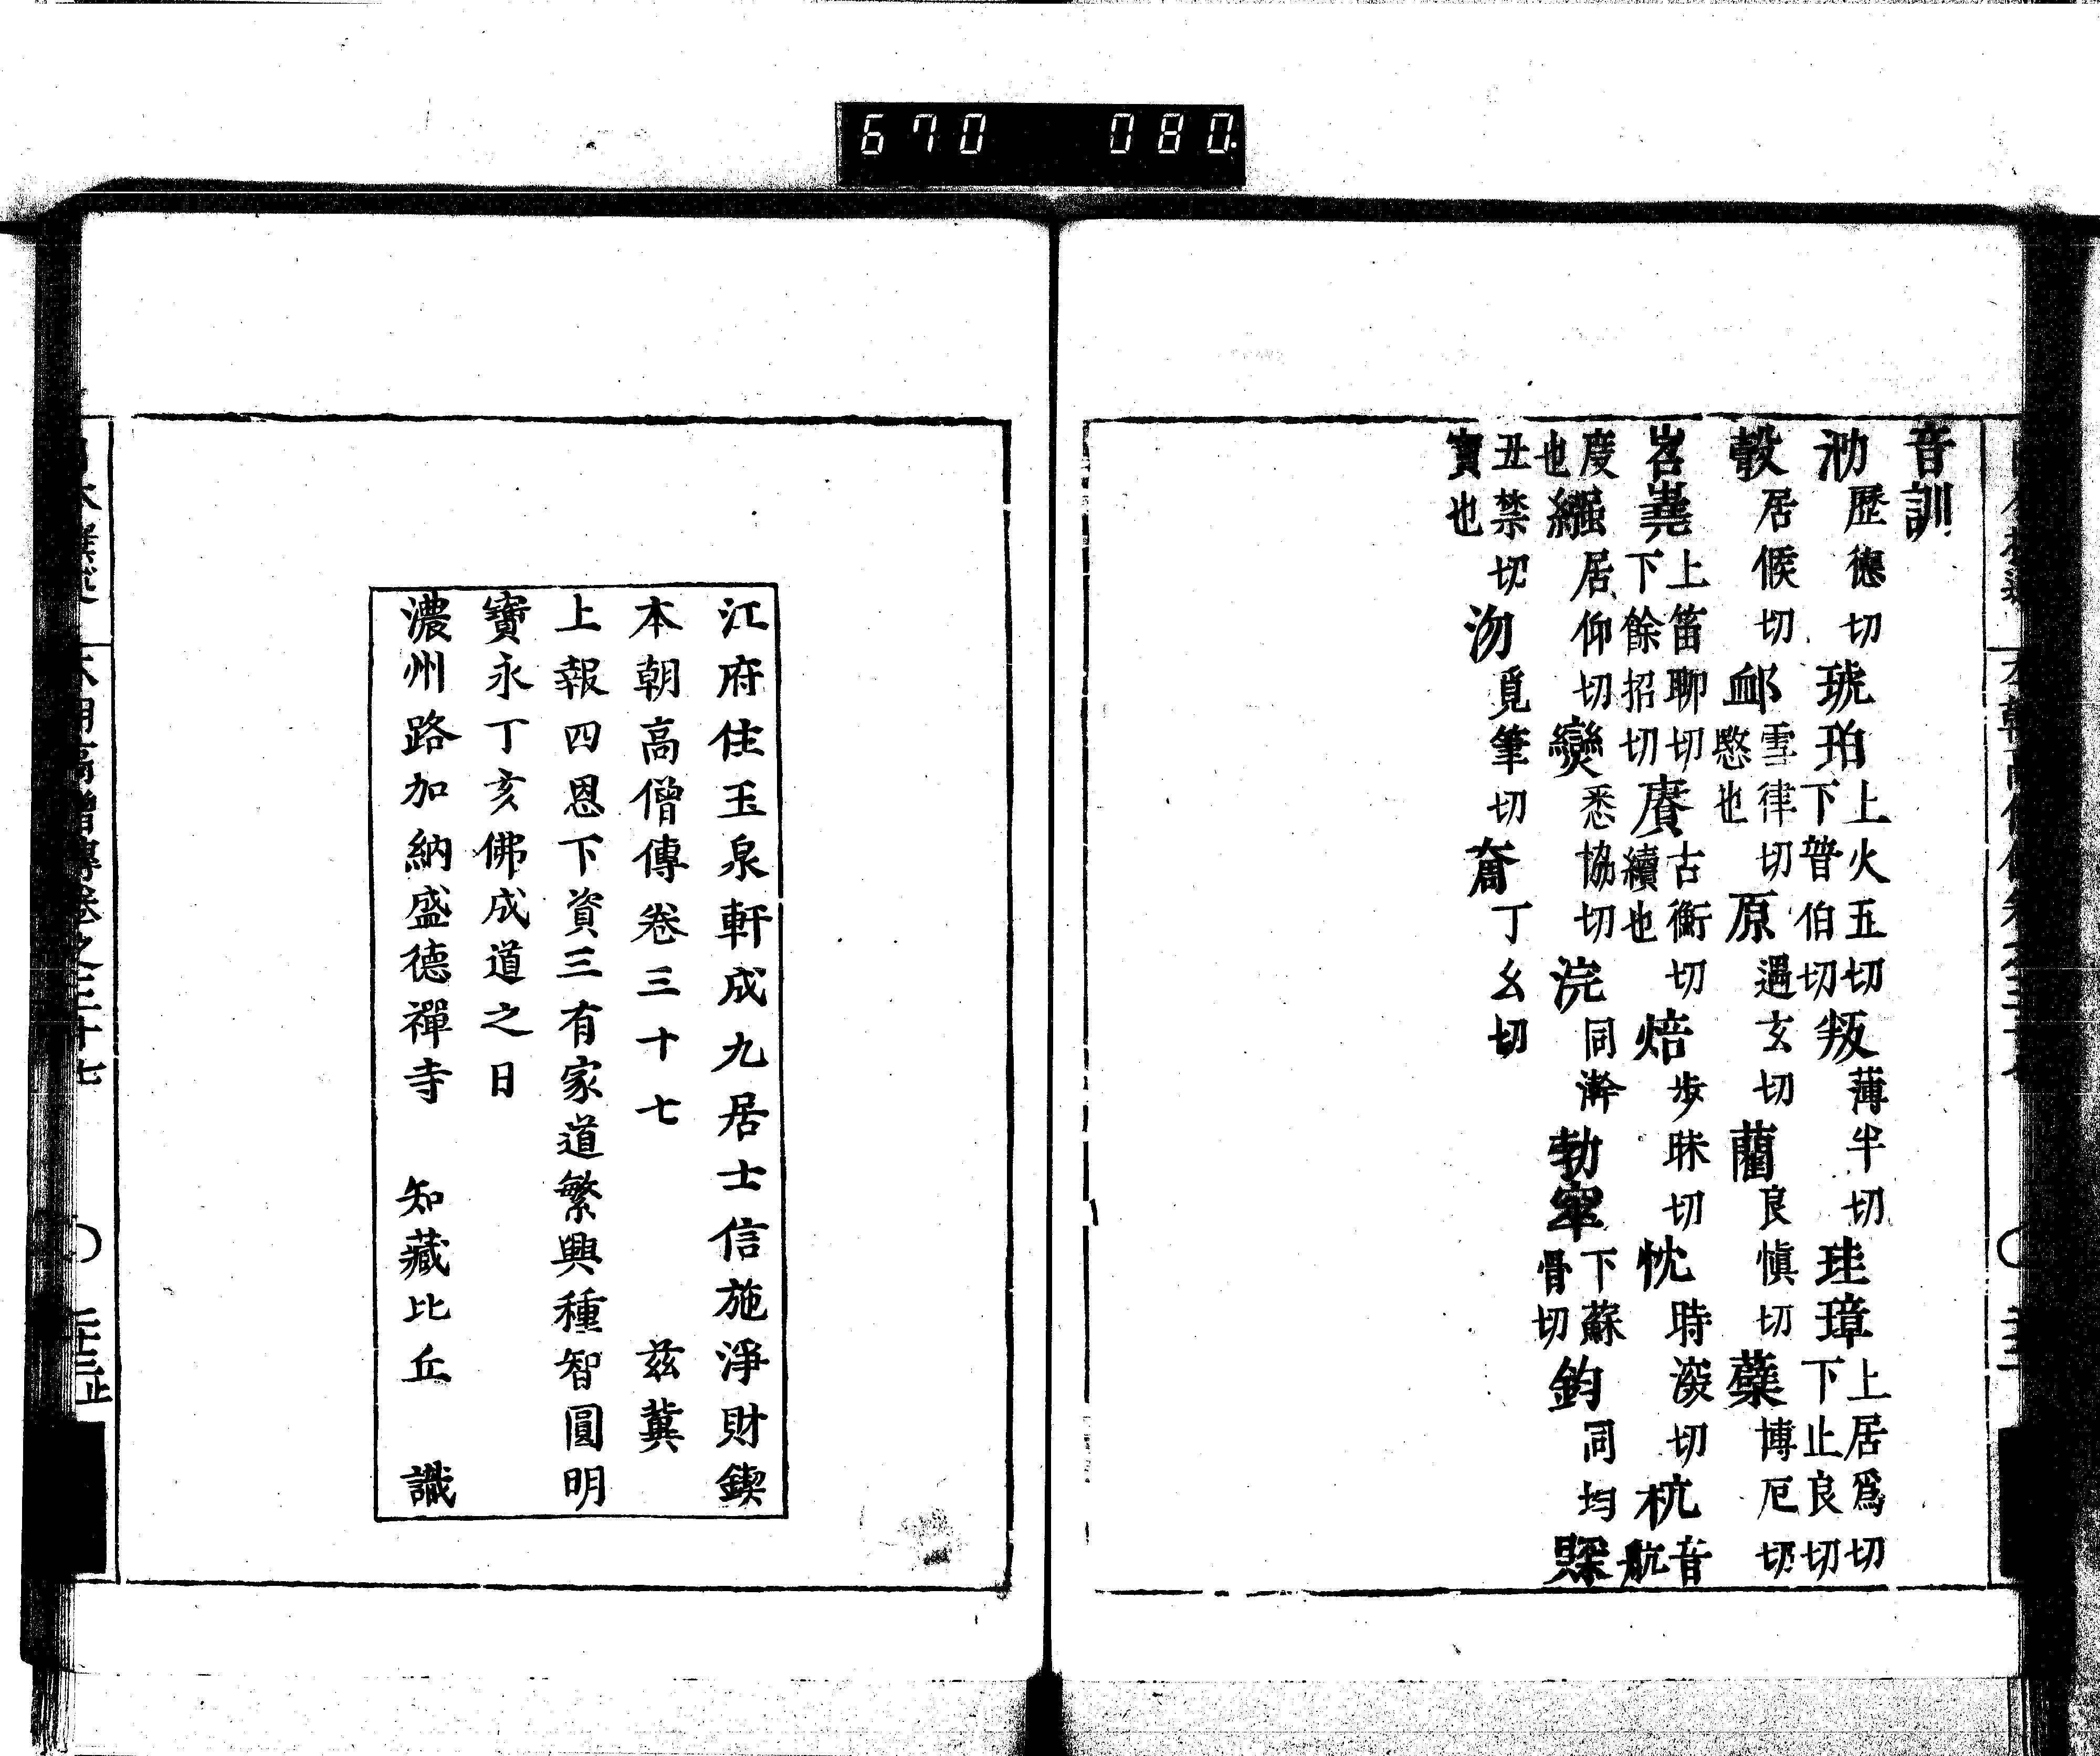 670 080
音訓
泐歴德切琥珀上火五切下普伯切叛薄半切珪璋上居爲切下止良切
彀居候切卹雪律切愍也原遇玄切藺良愼切蘗博厄切
岧嶤上笛聊切下餘招切賡古衡切續也焙歩眛切忱時渁切杭音航
度也繦居仰切孌悉協切浣同澣勃窣下蘇骨切鈞同均賝
丑禁切寶也沕覓筆切奝丁幺切
江府住玉泉軒成九居士信施淨財鍥
本朝高僧傳卷三十七 茲冀
上報四恩下資三有家道繁興種智圓明
寶永丁亥佛成道之日
濃州路加納盛德禪寺 知藏比丘 識
本朝高僧傳卷之三十七 二十三止